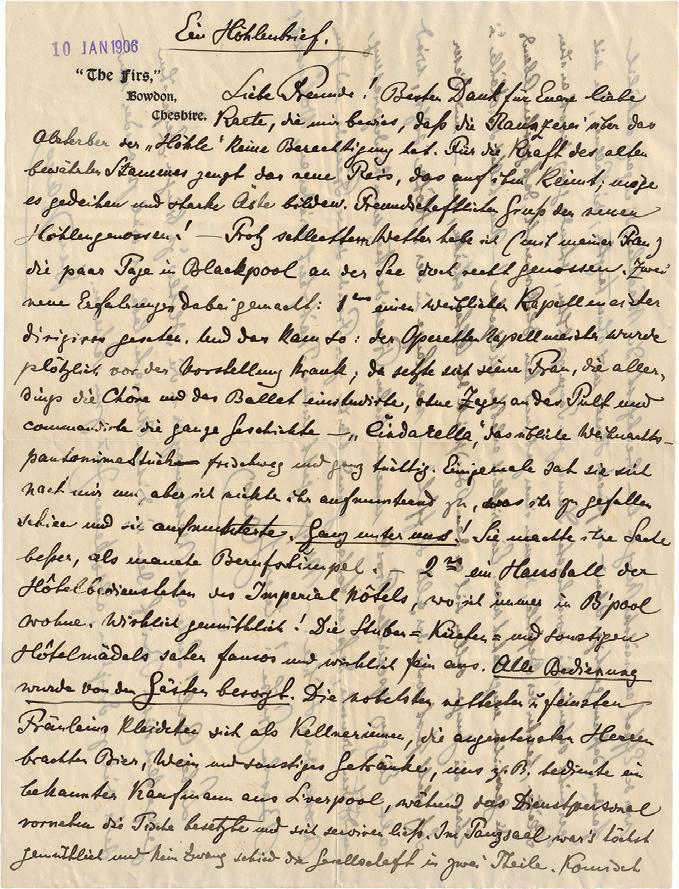 Ein Höhlenbrief.
10 JAN 1906
"The Firs,"
Bowdon,
Cheshire.
Liebe Freunde! Besten Dank für Euere liebe
Karte, die mir bewies, daß die Raunzerei über das
Absterben der „Höhle" keine Berechtigung hat. Für die Kraft des alten
bewährten Stammes zeugt das neue Reis, das auf ihm keimt, möge
es gedeihen und starke Äste bilden. Freundschaftlichen Gruß den neuen
Höhlengenossen! — Trotz schlechtem Wetter habe ich (mit meiner Frau)
die paar Tage in Blackpool an der See doch recht genossen. Zwei
neue Erfahrungen dabei gemacht: 1tens einen weiblichen Kapellmeister
dirigiren gesehen. Und das kam so: der Operettenkapellmeister wurde
plötzlich vor der Vorstellung krank; da setzte sich seine Frau, die aller-
dings die Chöre und das Ballet einstudirte, ohne Zagen an das Pult und
commandirte die ganze Geschichte — „Cindarella", das übliche Weihnachts-
pantomimestück frischweg und ganz tüchtig. Einigemale sah sie sich
nach mir um, aber ich nickte ihr aufmunternd zu, was ihr zu gefallen
schien und sie aufmunterte. Ganz unter uns! Sie machte ihre Sache
beßer, als manche Berufstümpel. — 2tens ein Hausball der
Hôtelbediensteten des Imperial Hôtels, wo ich immer in B'pool
wohne. Wirklich gemüthlich! Die Stuben= Küchen= und sonstigen
Hôtelmädels sahen famos und wirklich fein aus. Alle Bedienung
wurde von den Gästen besorgt. Die nobelsten nettesten u. feinsten
Fräuleins kleideten sich als Kellnerinnen, die angesehensten Herren
brachten Bier, Wein und sonstiges Getränke, uns z.B. bediente ein
bekannter Kaufmann aus Liverpool, während das Dienstpersonal
vornehm die Tische besetzte und sich serviren ließ. Im Tanzsaal war's höchst
gemüthlich und kein Zwang schied die Gesellschaft in zwei Theile. Komisch